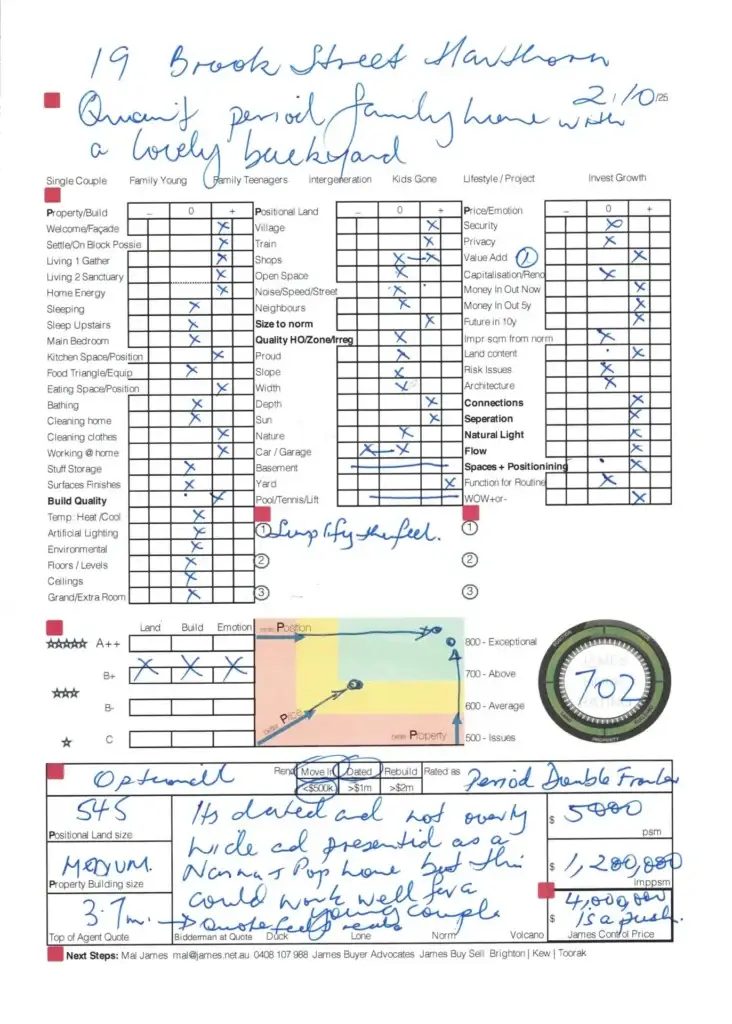 19 Brook Street Hawthorn
21/10/25
Quaint period family home with
a lovely backyard
Single Couple Family Young Family Teenagers Intergeneration Kids Gone Lifestyle / Project Invest Growth
Property/Build – 0 + Positional Land – 0 + Price/Emotion – 0 +
Welcome/Façade X Village X Security X
Settle/On Block Possie X Train X Privacy X
Living 1 Gather X Shops X–X Value Add 1 X
Living 2 Sanctuary X Open Space X Capitalisation/Reno X
Home Energy X Noise/Speed/Street X Money In Out Now X
Sleeping X Neighbours X Money In Out 5y X
Sleep Upstairs X Size to norm X Future in 10y X
Main Bedroom X Quality HO/Zone/Irreg X Impr sqm from norm X
Kitchen Space/Position X Proud X Land content X
Food Triangle/Equip X Slope X Risk Issues X
Eating Space/Position X Width X Architecture X
Bathing X Depth X Connections X
Cleaning home X Sun X Seperation X
Cleaning clothes X Nature X Natural Light X
Working @ home X Car / Garage X–X Flow X
Stuff Storage X Basement Spaces + Positionining X
Surfaces Finishes X Yard X Function for Routine X
Build Quality X Pool/Tennis/Lift WOW+or- X
Temp: Heat /Cool X 1 Simplify the feel. 1
Artificial Lighting X
Environmental X 2 2
Floors / Levels X
Ceilings X
Grand/Extra Room X 3 3
Land Build Emotion
A++
B+ X X X
B-
C
Position
Price
Property
800 - Exceptional
700 - Above
600 - Average
500 - Issues
702
PROPERTY
Optional Reno Move In Dated Rebuild Rated as Period Double Fronter
<$500k >$1m >$2m
545
Positional Land size
MEDIUM.
Property Building size
3.7m.
Top of Agent Quote
Its dated and not overly
wide and presented as a
Nanna + Pop home but this
could work well for a
young couple
→ Quote feels real
Bidderman at Quote Duck Lone Norm Volcano
$ 5000
psm
$ 1,280,000
imppsm
$ 4,000,000
is a push.
James Control Price
Next Steps: Mal James mal@james.net.au 0408 107 988 James Buyer Advocates James Buy Sell Brighton | Kew | Toorak